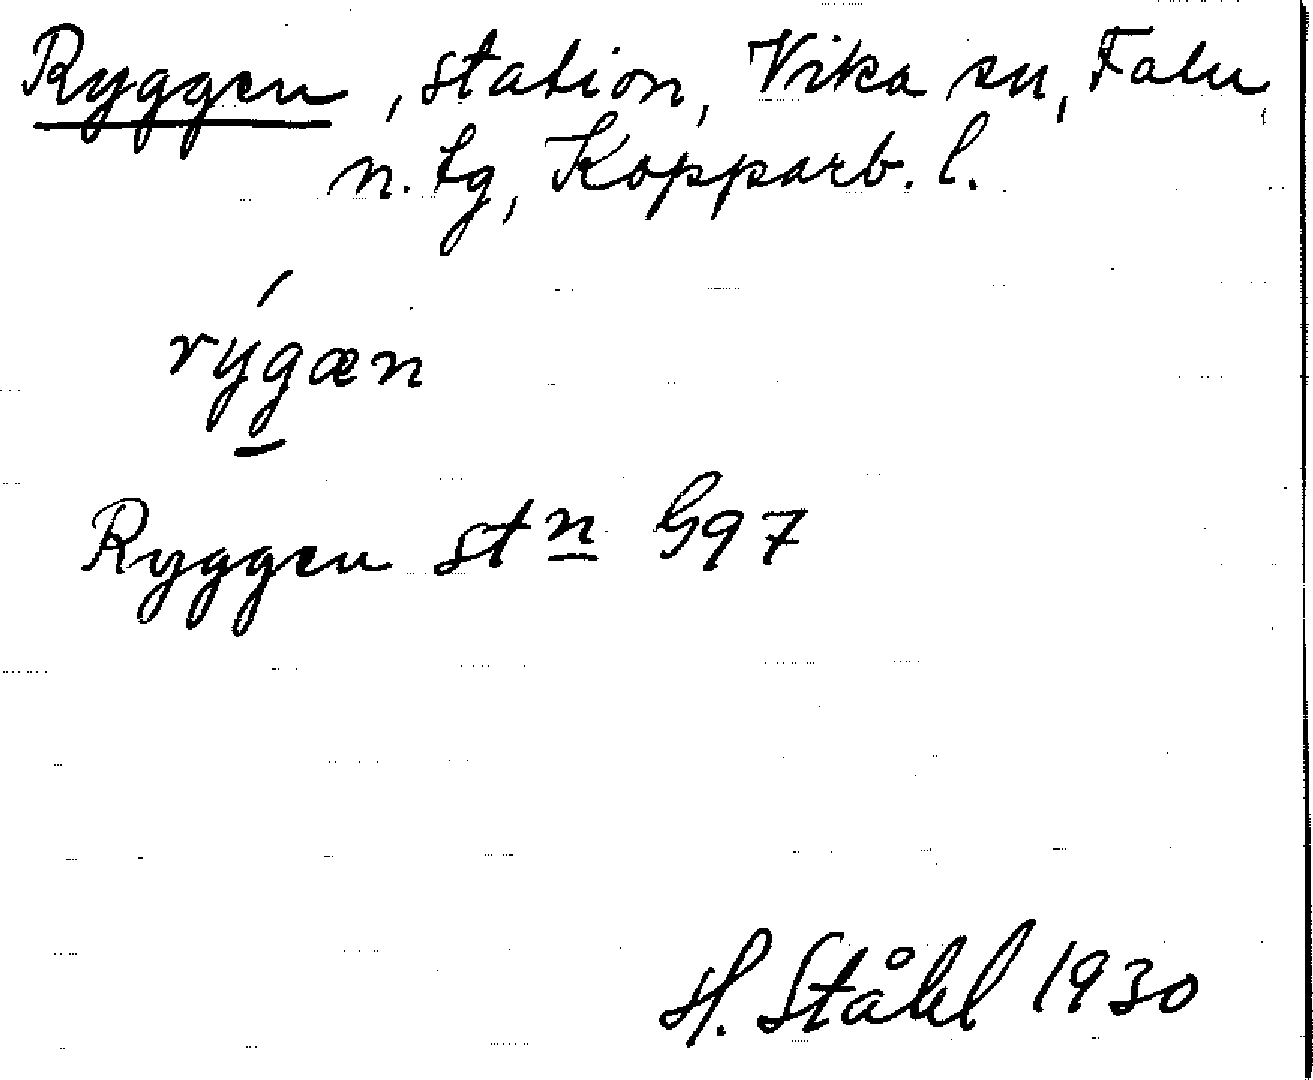 Ryggen, station, Vika sn, Falu
n. tg, Kopparb. l.
rýgæn
Ryggen stn G97
H. Ståhl 1930